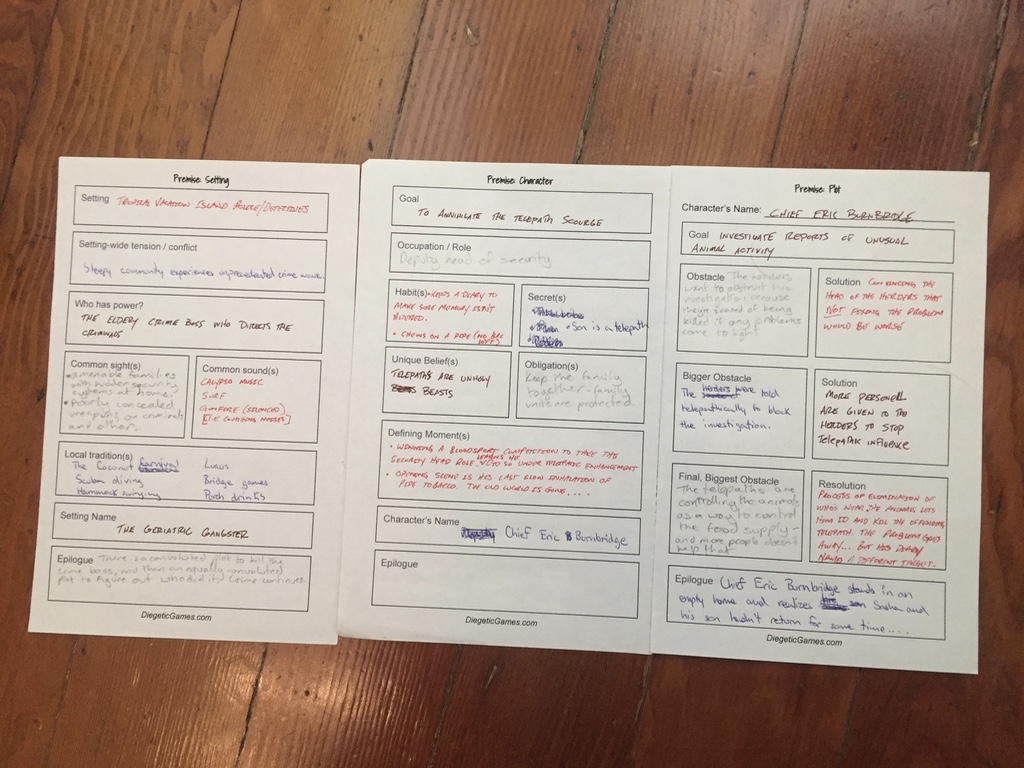 Premise: Setting
Setting TROPICAL VACATION ISLAND POLICE/DETECTIVES
Setting-wide tension / conflict
Sleepy community experiences unprecedented crime wave.
Who has power?
THE ELDERY CRIME BOSS WHO DIRECTS THE
CRIMINALS
Common sight(s)
with
systems at home.
• Poorly concealed
weapons on criminals
and other.
Common sound(s)
CALYPSO MUSIC
SURF
GUNFIRE (SILENCED)
Local tradition(s)
The Coconut Karnival
Scuba diving
Hammock swinging
Luaus
Bridge games
Porch drinks
Setting Name
THE GERIATRIC GANGSTER
Epilogue There is a convoluted plot to kill the
crime boss, and then an equally convoluted
plot to figure out who did it! Crime continues.
DiegeticGames.com
Premise: Character
Goal
TO ANNIHILATE THE TELEPATH SCOURGE
Occupation / Role
Deputy head of security
Habit(s) • KEEPS A DIARY TO
MAKE SURE MEMORY ISN'T
ALTERED.
• CHEWS ON A PIPE
Secret(s)
• Son is a telepath
Unique Belief(s)
TELEPATHS ARE UNHOLY
BEASTS
Obligation(s)
Keep the family
together - family
units are protected.
Defining Moment(s)
• WINNING A BLOODSPORT COMPETITION TO TAKE THE
SECURITY HEAD ROLE, LEARNS HE DID SO UNDER TELEPATHIC ENHANCEMENT
• OPENING SCENE IS HIS LAST SLOW INHALATION OF
PIPE TOBACCO. THE OLD WORLD IS GONE....
Character's Name
Chief Eric Burnbridge
Epilogue
DiegeticGames.com
Premise: Plot
Character's Name: CHIEF ERIC BURNBRIDGE
Goal INVESTIGATE REPORTS OF UNUSUAL
ANIMAL ACTIVITY
Obstacle The herders
want to obstruct this
investigation because
they're scared of being
killed if any problems
come to light
Solution CONVINCING THE
HEAD OF THE HERDERS THAT
NOT FIXING THE PROBLEM
WOULD BE WORSE
Bigger Obstacle
The herders were told
telepathically to block
the investigation.
Solution
MORE PERSONELL
ARE GIVEN TO THE
HERDERS TO STOP
TELEPATHIC INFLUENCE
Final, Biggest Obstacle
The telepaths are
controlling the animals
as a way to control
the food supply -
and more people doesn't
help that
Resolution
PROCESS OF ELIMINATION OF
WHO'S NEAR THE ANIMALS LETS
HIM ID AND KILL THE OFFENDING
TELEPATH. THE PROBLEM GOES
AWAY... BUT HIS DIARY
NAMED A DIFFERENT TARGET.
Epilogue Chief Eric Burnbridge stands in an
empty home and realizes Sasha and
his son hadn't return for some time....
DiegeticGames.com